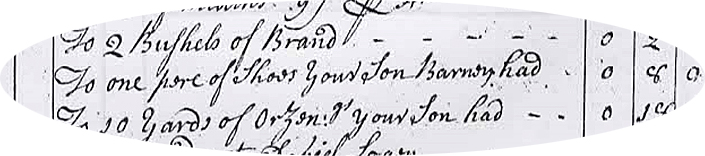 To 2 Bushels of Brand - - - - - 0 2
To one pere of Shoes Your Son Barney had - 0 8 0
To 10 Yards of Ozen:gs your Son had - - 0 18